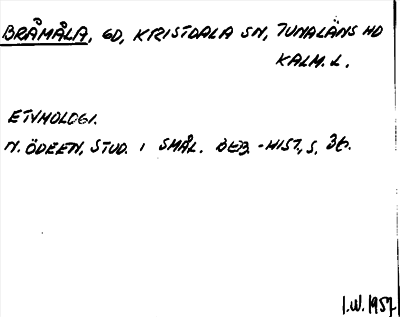 BRÅMÅLA, GD, KRISTDALA SN, TUNALÄNS HD
KALM. L.
ETYMOLOGI.
N. ÖDEEN, STUD. I SMÅL. BEB.-HIST., S. 36.
I.W. 1957